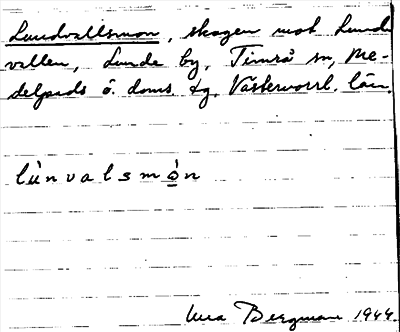 Lundvallsmon, skogen mot Lund-
vallen, Lunde by, Timrå sn, Me-
delpads ö. doms. tg. Västernorrl. län.
lùnvalsmò̲n
Bergman 1944.